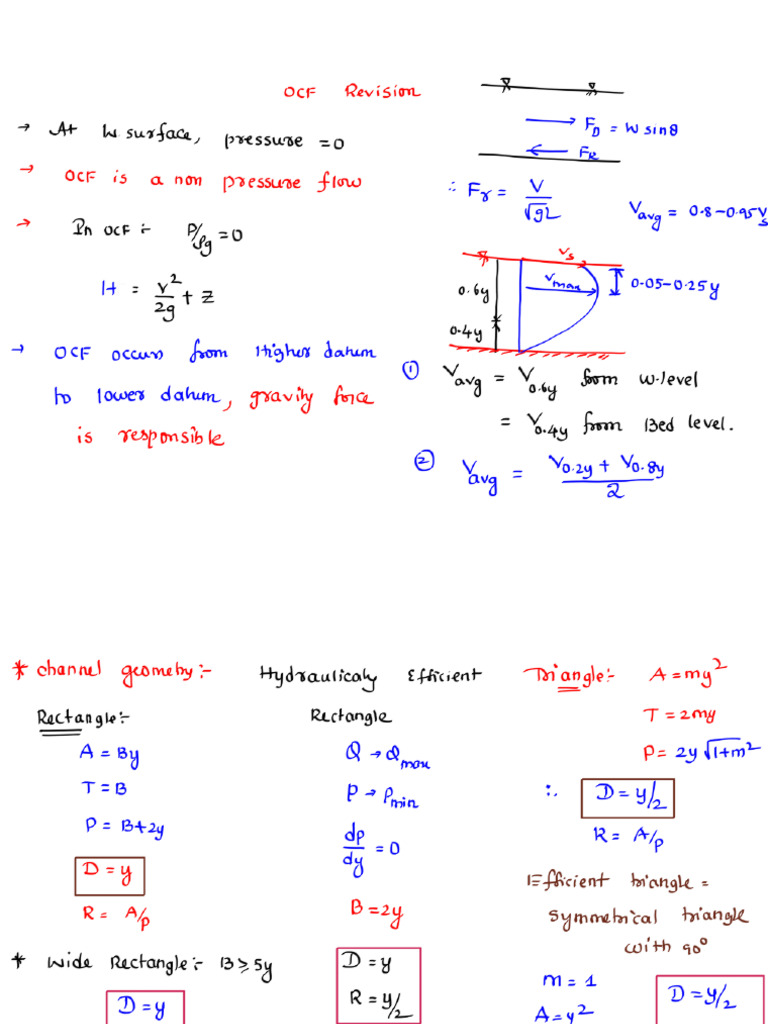 OCF Revision
→ At W surface, pressure = 0
→ OCF is a non pressure flow
→ In OCF :- P/ρg = 0
H = v²/2g + Z
→ OCF occurs from Higher datum
to lower datum, gravity force
is responsible
F_D = W sinθ
F_R
∴ Fr = V/√gL
V_avg = 0.8-0.95 V_s
V_s
V_max
0.6y
0.4y
0.05-0.25y
① V_avg = V_0.6y from w.level
= V_0.4y from Bed level.
② V_avg = (V_0.2y + V_0.8y)/2
* Channel geometry:-
Rectangle:-
A = By
T = B
P = B+2y
D = y
R = A/P
* Wide Rectangle:- B ≥ 5y
D = y
Hydraulicaly Efficient
Rectangle
Q → Q_max
P → P_min
dp/dy = 0
B = 2y
D = y
R = y/2
Triangle:- A = my²
T = 2my
P = 2y √1+m²
∴ D = y/2
R = A/P
Efficient triangle =
Symmetrical triangle
with 90°
m = 1
A = y²
D = y/2